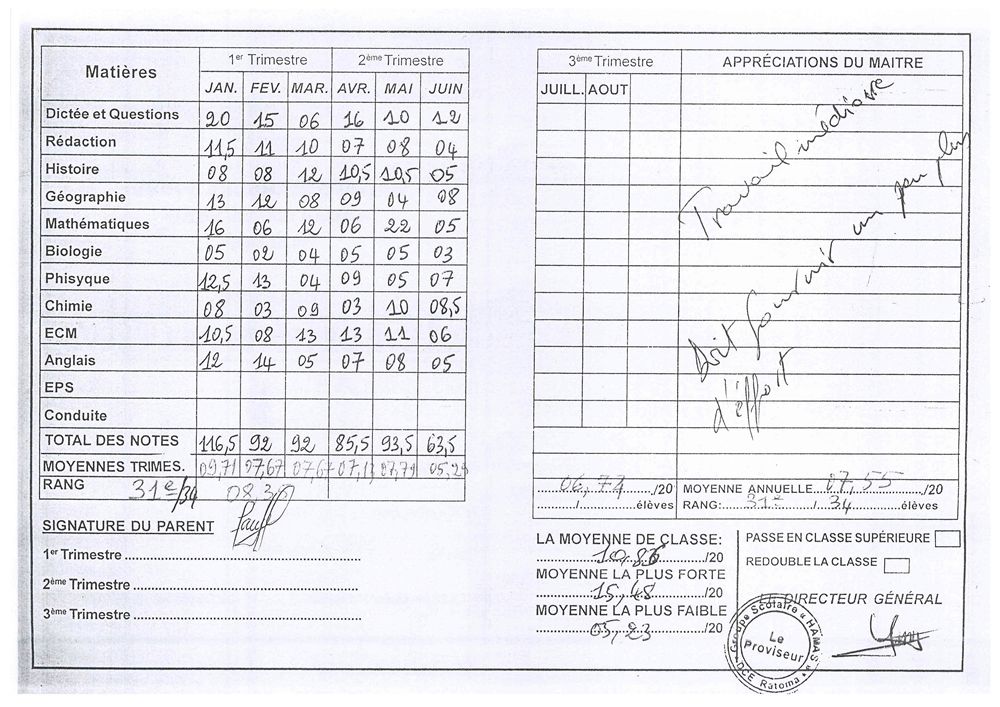 Matières 1er Trimestre 2ème Trimestre
JAN. FEV. MAR. AVR. MAI JUIN
Dictée et Questions 20 15 06 16 10 12
Rédaction 11,5 11 10 07 08 04
Histoire 08 08 12 10,5 10,5 05
Géographie 13 12 08 09 04 08
Mathématiques 16 06 12 06 22 05
Biologie 05 02 04 05 05 03
Phisyque 12,5 13 04 09 05 07
Chimie 08 03 09 03 10 08,5
ECM 10,5 08 13 13 11 06
Anglais 12 14 05 07 08 05
EPS
Conduite
TOTAL DES NOTES 116,5 92 92 85,5 93,5 63,5
MOYENNES TRIMES. 09,71 07,67 07,67 07,13 07,79 05,29
RANG 31e/34 08,36
SIGNATURE DU PARENT
1er Trimestre
2ème Trimestre
3ème Trimestre
3ème Trimestre APPRÉCIATIONS DU MAITRE
JUILL. AOUT
Travail médiocre
Doit fournir un peu plus
d'éffort
06,74 /20 MOYENNE ANNUELLE 07,55 /20
/ élèves RANG: 31e / 34 élèves
LA MOYENNE DE CLASSE:
10,86 /20
MOYENNE LA PLUS FORTE
15,48 /20
MOYENNE LA PLUS FAIBLE
05,23 /20
PASSE EN CLASSE SUPÉRIEURE
REDOUBLE LA CLASSE
LE DIRECTEUR GÉNÉRAL
Groupe Scolaire « HAMAS »
Le
Proviseur
DCE Ratoma